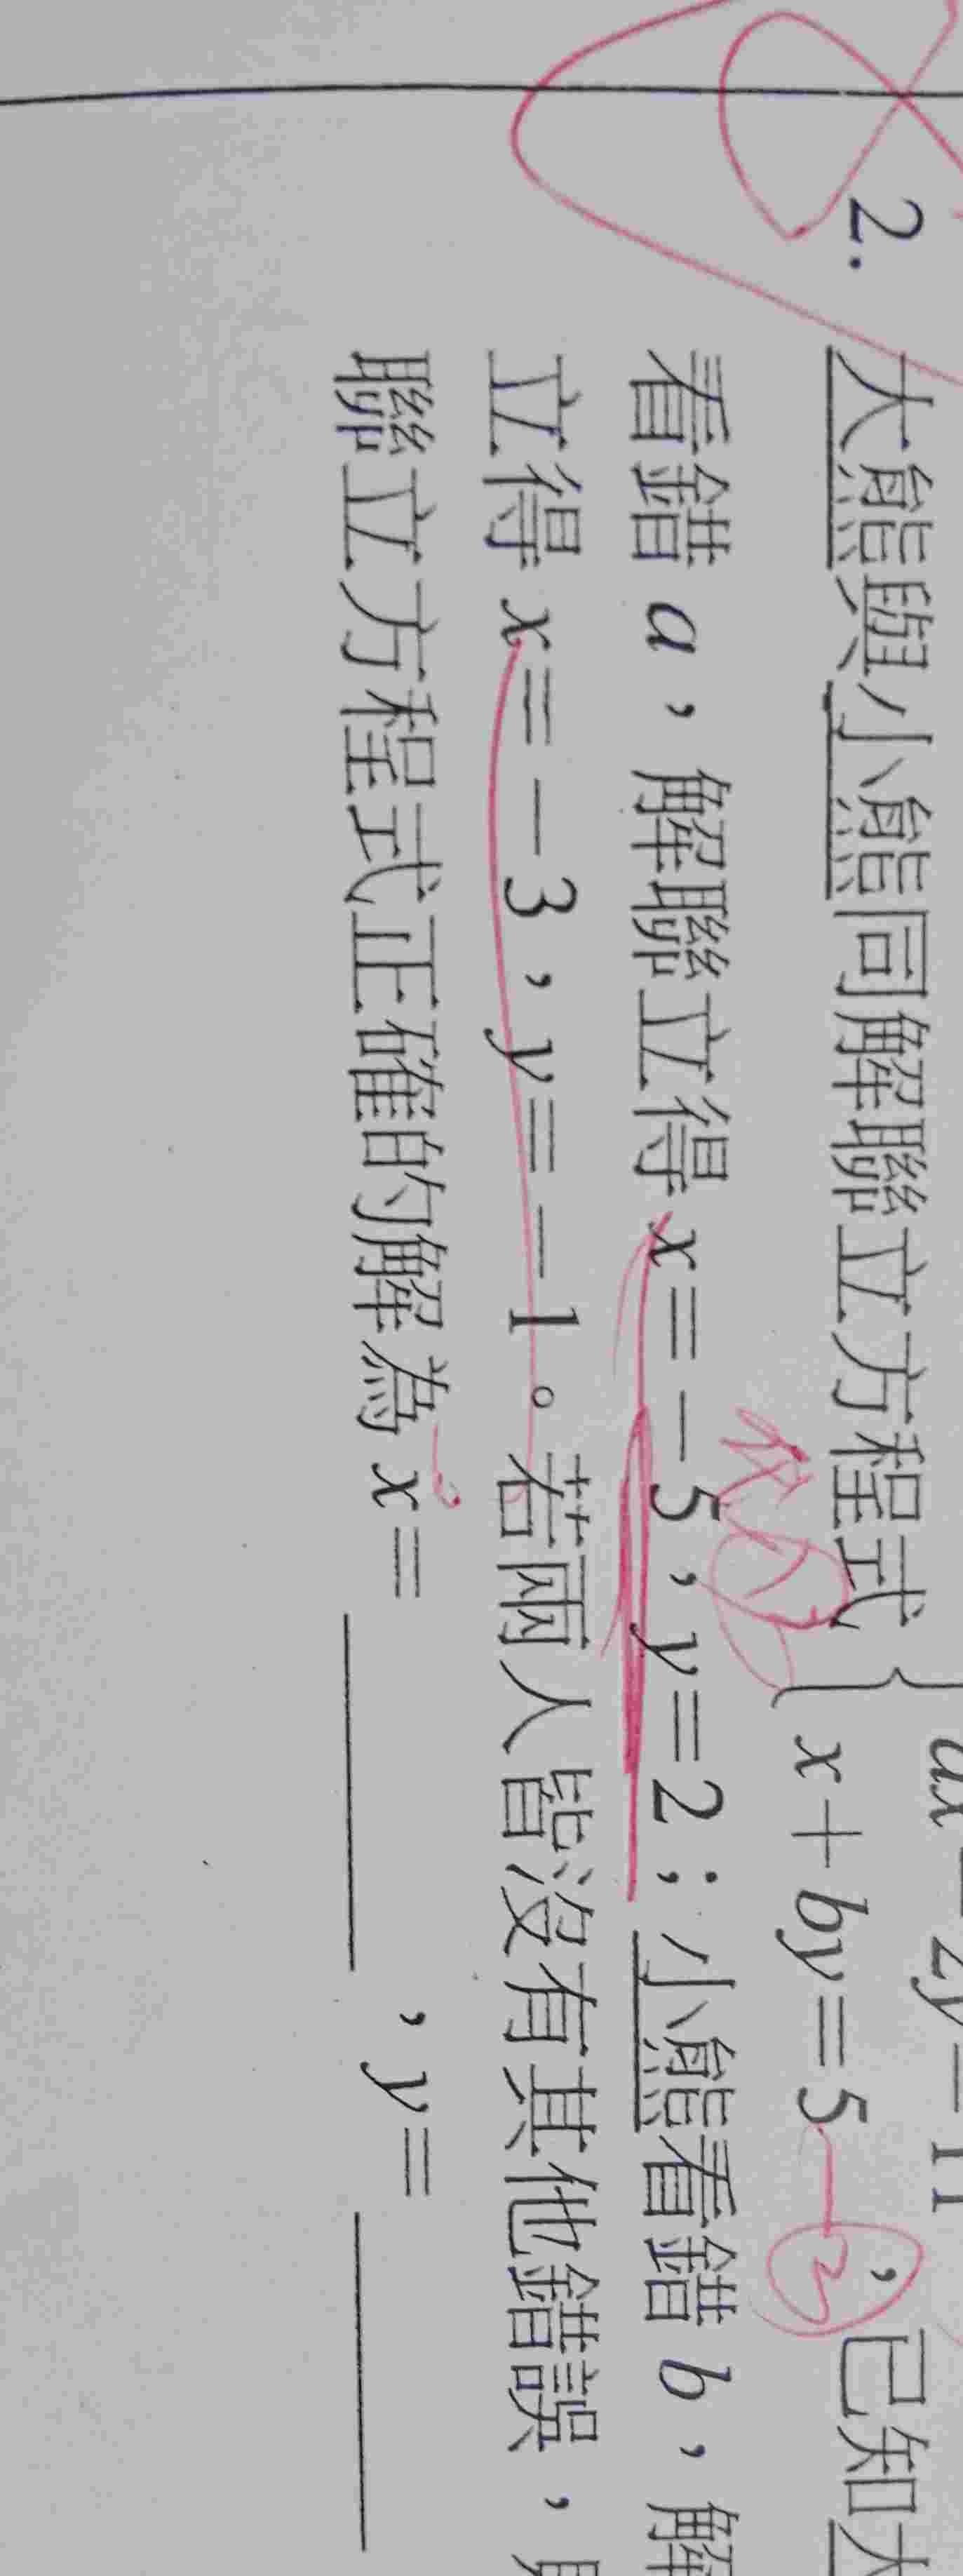 2. 大熊與小熊同解聯立方程式 { ax－2y＝11
x＋by＝5 ，已知大
看錯 a，解聯立得 x＝－5，y＝2；小熊看錯 b，解
立得 x＝－3，y＝－1。若兩人皆沒有其他錯誤，
聯立方程式正確的解為 x＝＿＿＿，y＝＿＿＿